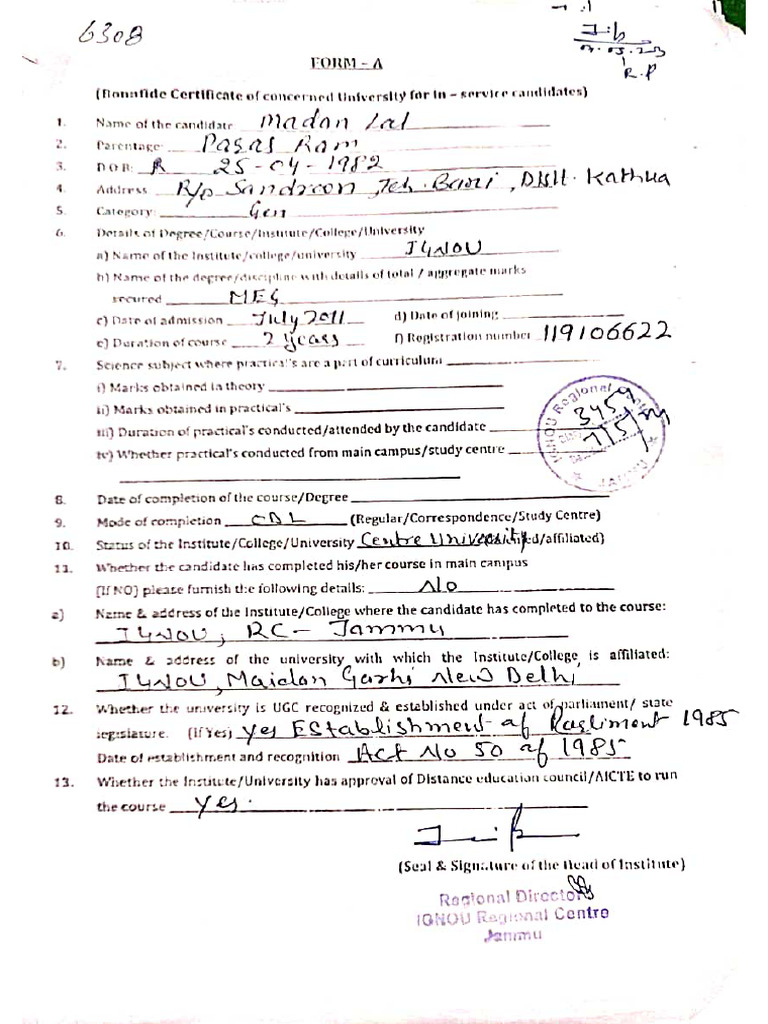 6308
R.P
FORM - A
(Bonafide Certificate of concerned University for in - service candidates)
1. Name of the candidate Madan Lal
2. Parentage: Paras Ram
3. D.O.B: 25-04-1982
4. Address R/o Sandroon, Teh. Bani, Distt. Kathua
5. Category: Gen
6. Details of Degree/Course/Institute/College/University
a) Name of the Institute/college/university IGNOU
b) Name of the degree/discipline with details of total / aggregate marks
secured MEG
c) Date of admission July 2011 d) Date of joining
e) Duration of course 2 years f) Registration number 119106622
7. Science subject where practical's are a part of curriculum
i) Marks obtained in theory
ii) Marks obtained in practical's
iii) Duration of practical's conducted/attended by the candidate
iv) Whether practical's conducted from main campus/study centre
IGNOU Regional Centre
3459
JAMMU
8. Date of completion of the course/Degree
9. Mode of completion ODL (Regular/Correspondence/Study Centre)
10. Status of the Institute/College/University Centre University /affiliated)
11. Whether the candidate has completed his/her course in main campus
(If NO) please furnish the following details: No
a) Name & address of the Institute/College where the candidate has completed to the course:
IGNOU, RC - Jammu
b) Name & address of the university with which the Institute/College is affiliated:
IGNOU, Maidan Garhi New Delhi
12. Whether the university is UGC recognized & established under act of parliament/ state
legislature. (If Yes) Yes Establishment of Parliment 1985
Date of establishment and recognition Act No 50 of 1985
13. Whether the Institute/University has approval of Distance education council/AICTE to run
the course Yes.
(Seal & Signature of the Head of Institute)
Regional Director
IGNOU Regional Centre
Jammu